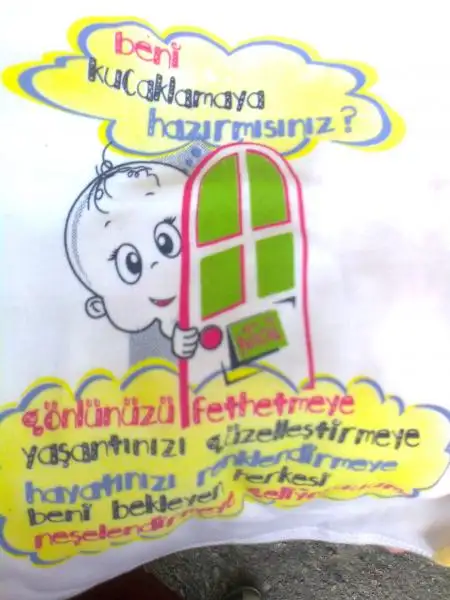 beni
kucaklamaya
hazırmısınız?
gönlünüzü fethetmeye
yaşantınızı güzelleştirmeye
hayatınızı renklendirmeye
beni bekleyen herkesi
neşelendirmeye